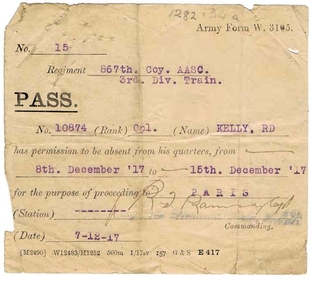 1282
Army Form W. 3105.
No. 15
Regiment 867th. Coy. AASC.
3rd. Div. Train.
PASS.
No. 10874 (Rank) Cpl. (Name) KELLY, RD
has permission to be absent from his quarters, from
8th. December '17 to 15th. December '17
for the purpose of proceeding to PARIS
(Station)
Commanding.
(Date) 7-12-17
[M2490] W12483/M1252 500m 1/17 157 G & S E 417